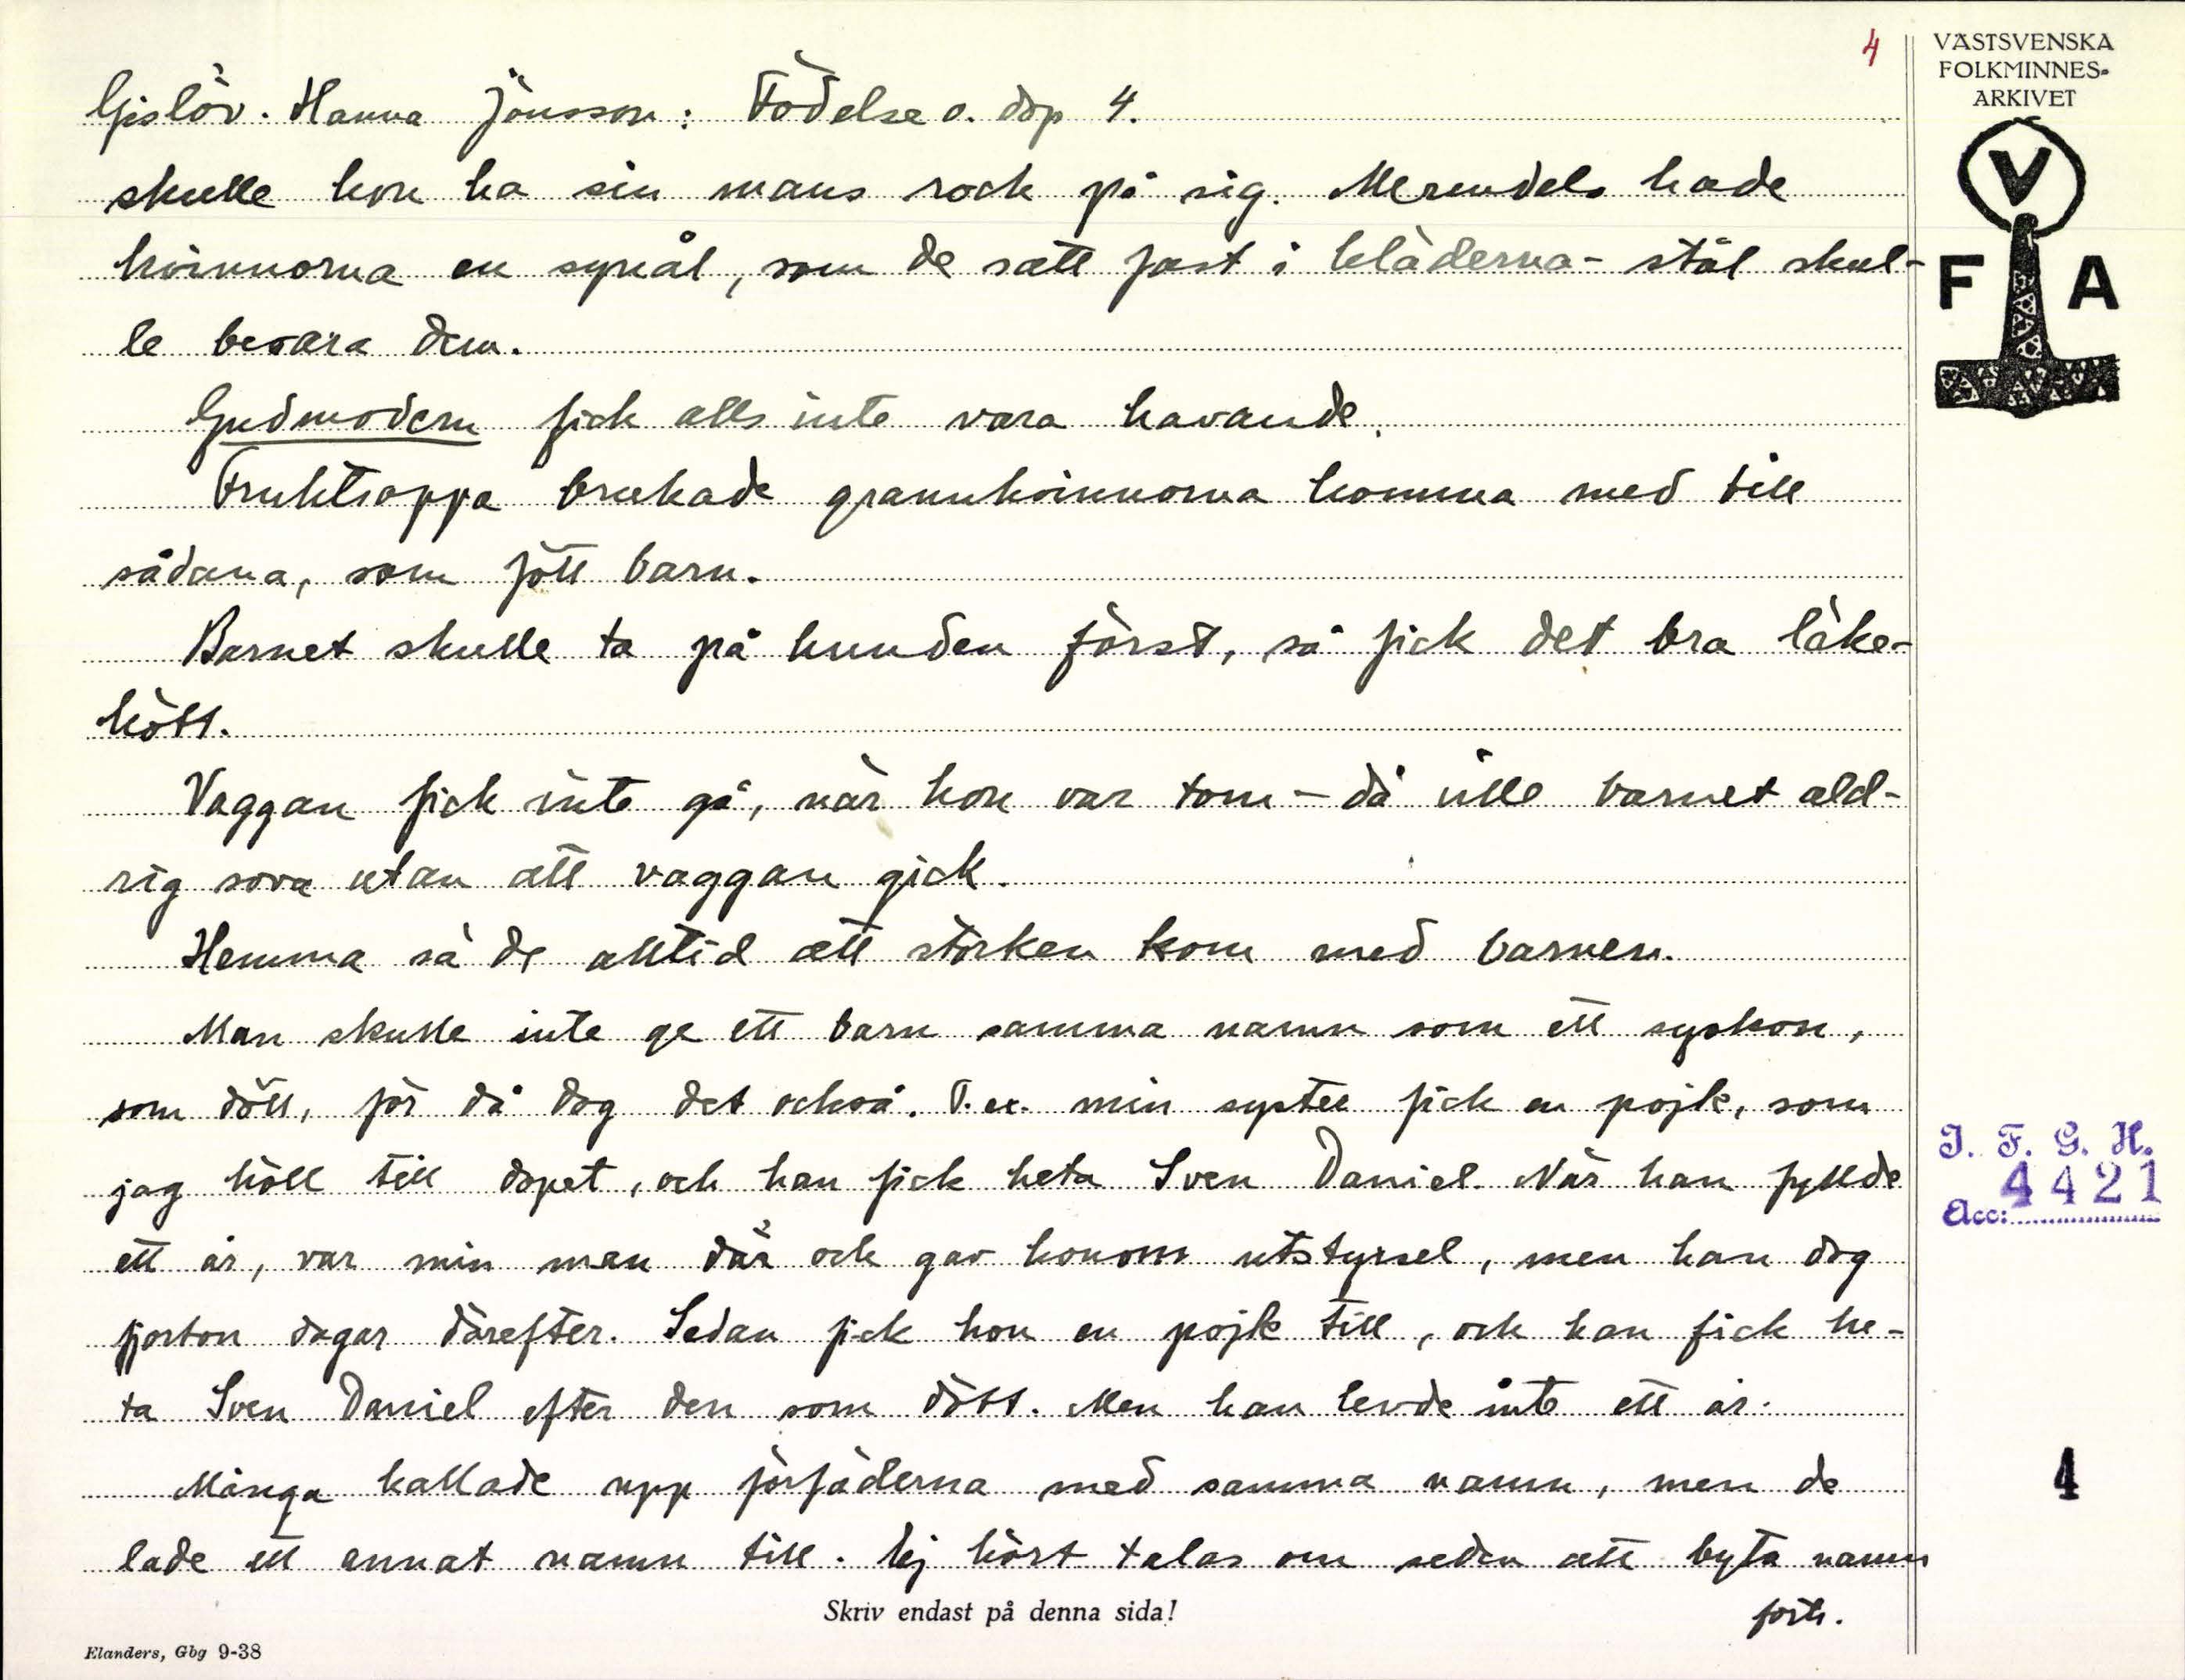 4
VÄSTSVENSKA
FOLKMINNES-
ARKIVET
V
F A
Gislöv. Hanna Jönsson: Födelse o. dop 4.
skulle hon ha sin mans rock på sig. Merendels hade
kvinnorna en synål, som de satt fast i kläderna - stål skul-
le bevara dem.
Gudmodern fick alls inte vara havande.
Fruktsoppa brukade grannkvinnorna komma med till
sådana, som fött barn.
Barnet skulle ta på hunden först, så fick det bra läke-
kött.
Vaggan fick inte gå, när hon var tom - då ville barnet ald-
rig sova utan att vaggan gick.
Hemma sà de alltid att storken kom med barnen.
Man skulle inte ge ett barn samma namn som ett syskon,
som dött, för då dog det också. T.ex. min syster fick en pojk, som
jag höll till dopet, och han fick heta Sven Daniel. När han fyllde
ett år, var min man där och gav honom utstyrsel, men han dog
fjorton dagar därefter. Sedan fick hon en pojk till, och han fick he-
ta Sven Daniel efter den som dött. Men han levde inte ett år.
Många kallade upp förfäderna med samma namn, men de
lade ett annat namn till. Ej hört talas om seden att byta namn
forts.
I. F. G. H.
Acc: 4421
4
Skriv endast på denna sida!
Elanders, Gbg 9-38